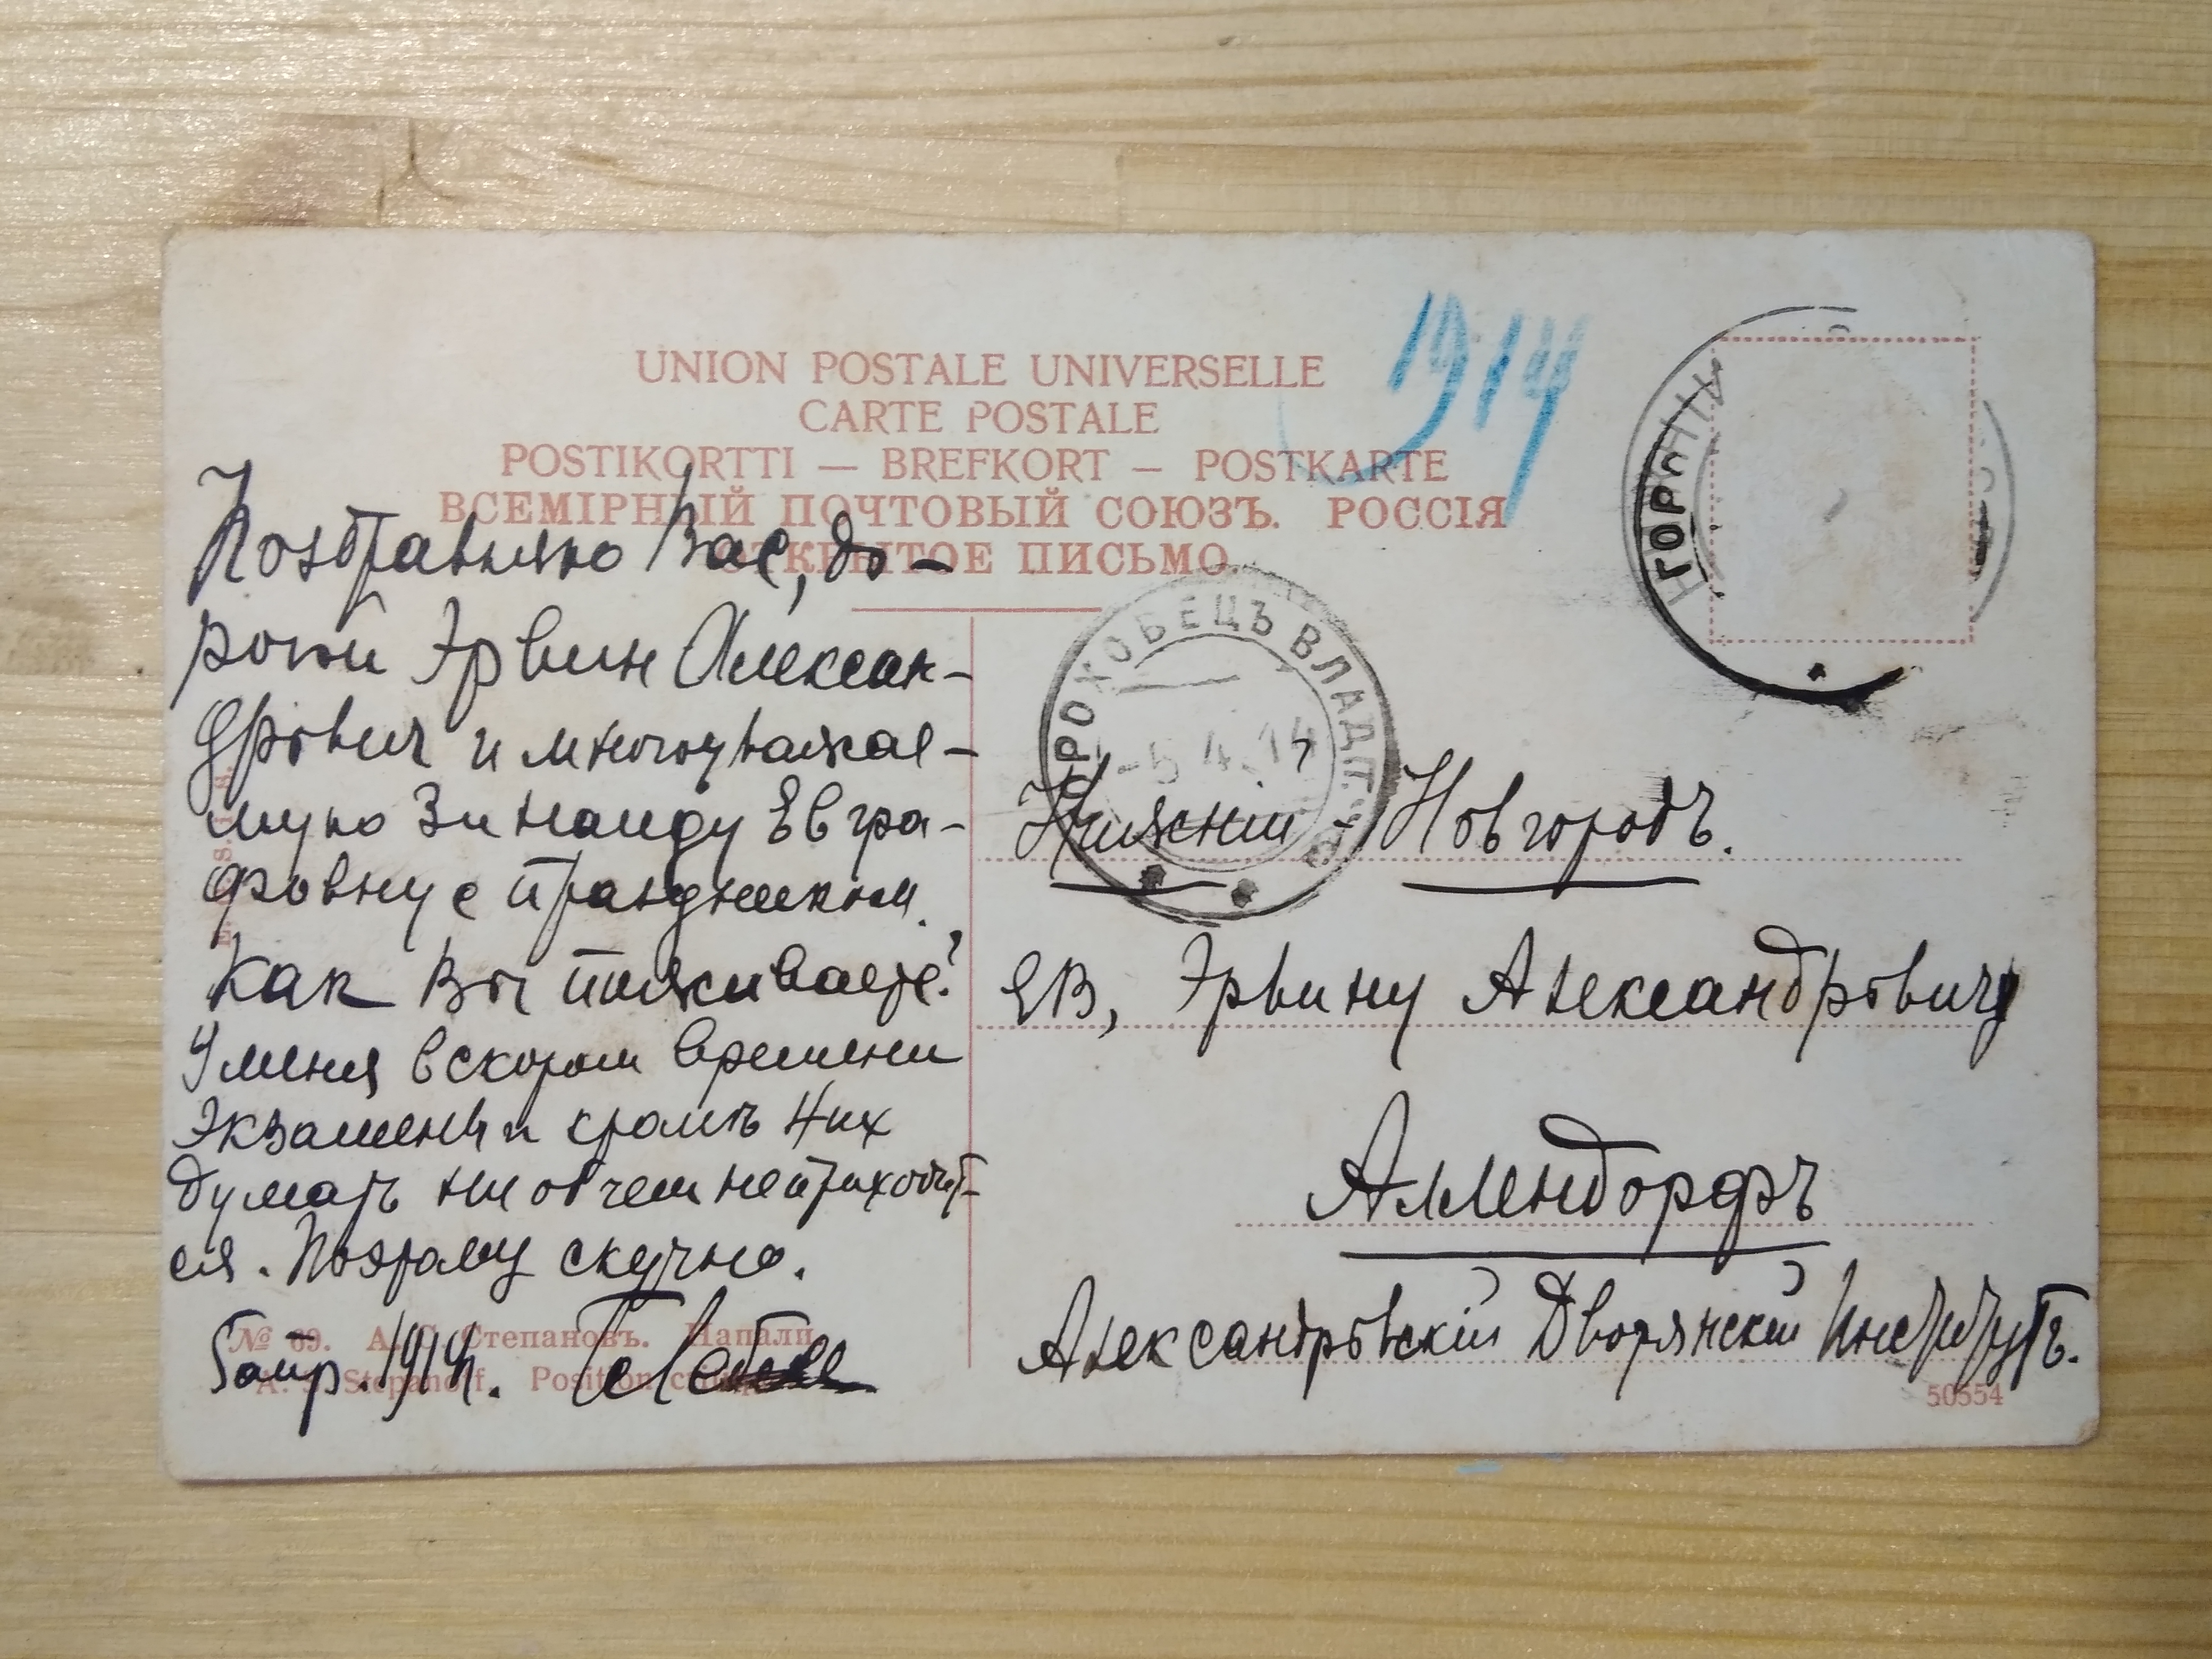 1914
UNION POSTALE UNIVERSELLE
CARTE POSTALE
POSTIKORTTI — BREFKORT — POSTKARTE
ВСЕМІРНЫЙ ПОЧТОВЫЙ СОЮЗЪ. РОССІЯ
ОТКРЫТОЕ ПИСЬМО
Поздравляю Вас, до-
рогой Эрвин Алексан-
дрович и многоуважае-
мую Зинаиду Евгра-
фовну с праздником.
Как Вы поживаете?
У меня в скором времени
экзамены и кромѣ них
думать ни об чем не приходит-
ся. Поэтому скучно.
5 апр. 1914.
№ 69. А. С. Степановъ. Напали
A. S. Stepanoff. Position
ГОРОХОВЕЦЪ ВЛАДИ.
-5 4 14
ГОР
Нижній-Новгородъ.
ЕВ, Эрвину Александровичу
Аллендорфъ
Александровскій Дворянскій Институтъ.
50554